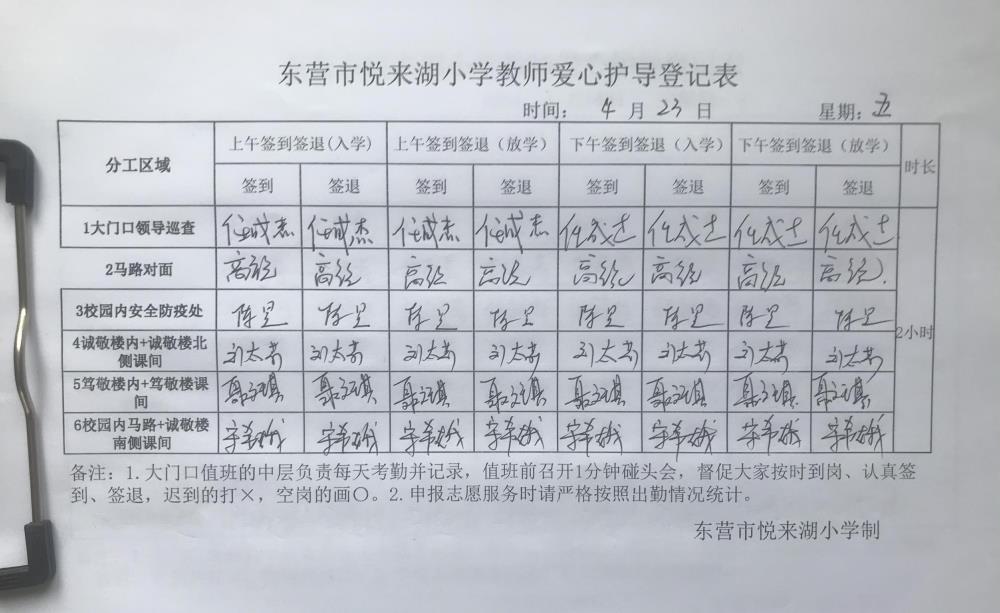 东营市悦来湖小学教师爱心护导登记表
时间: 4 月 23 日 星期: 五
分工区域 上午签到签退(入学) 上午签到签退(放学) 下午签到签退(入学) 下午签到签退(放学) 时长
签到 签退 签到 签退 签到 签退 签到 签退
1大门口领导巡查 任成杰 任成杰 任成杰 任成杰 任成杰 任成杰 任成杰 任成杰
2马路对面 高 高 高 高 高 高 高 高
3校园内安全防疫处 陈 陈 陈 陈 陈 陈 陈 陈
2小时
4诚敬楼内+诚敬楼北
侧课间 刘太 刘太 刘太 刘太 刘太 刘太 刘太 刘太
5笃敬楼内+笃敬楼课
间 聂文琪 聂文琪 聂文琪 聂文琪 聂文琪 聂文琪 聂文琪 聂文琪
6校园内马路+诚敬楼
南侧课间
备注: 1.大门口值班的中层负责每天考勤并记录, 值班前召开1分钟碰头会, 督促大家按时到岗、认真签
到、签退, 迟到的打×, 空岗的画〇。2.申报志愿服务时请严格按照出勤情况统计。
东营市悦来湖小学制